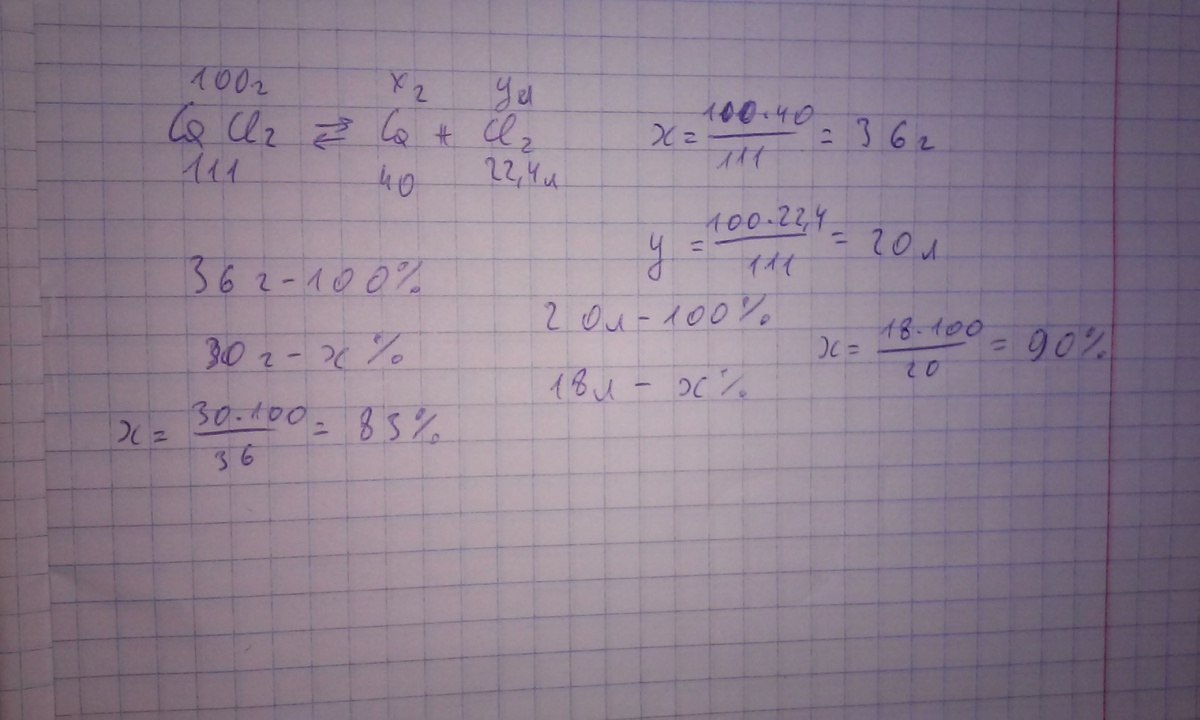 100г xг yл
CaCl2 ⇄ Ca + Cl2
111 40 22,4л
x = 100·40 / 111 = 36г
y = 100·22,4 / 111 = 20л
36г - 100%
30г - x%
x = 30·100 / 36 = 83%
20л - 100%
18л - x%
x = 18·100 / 20 = 90%